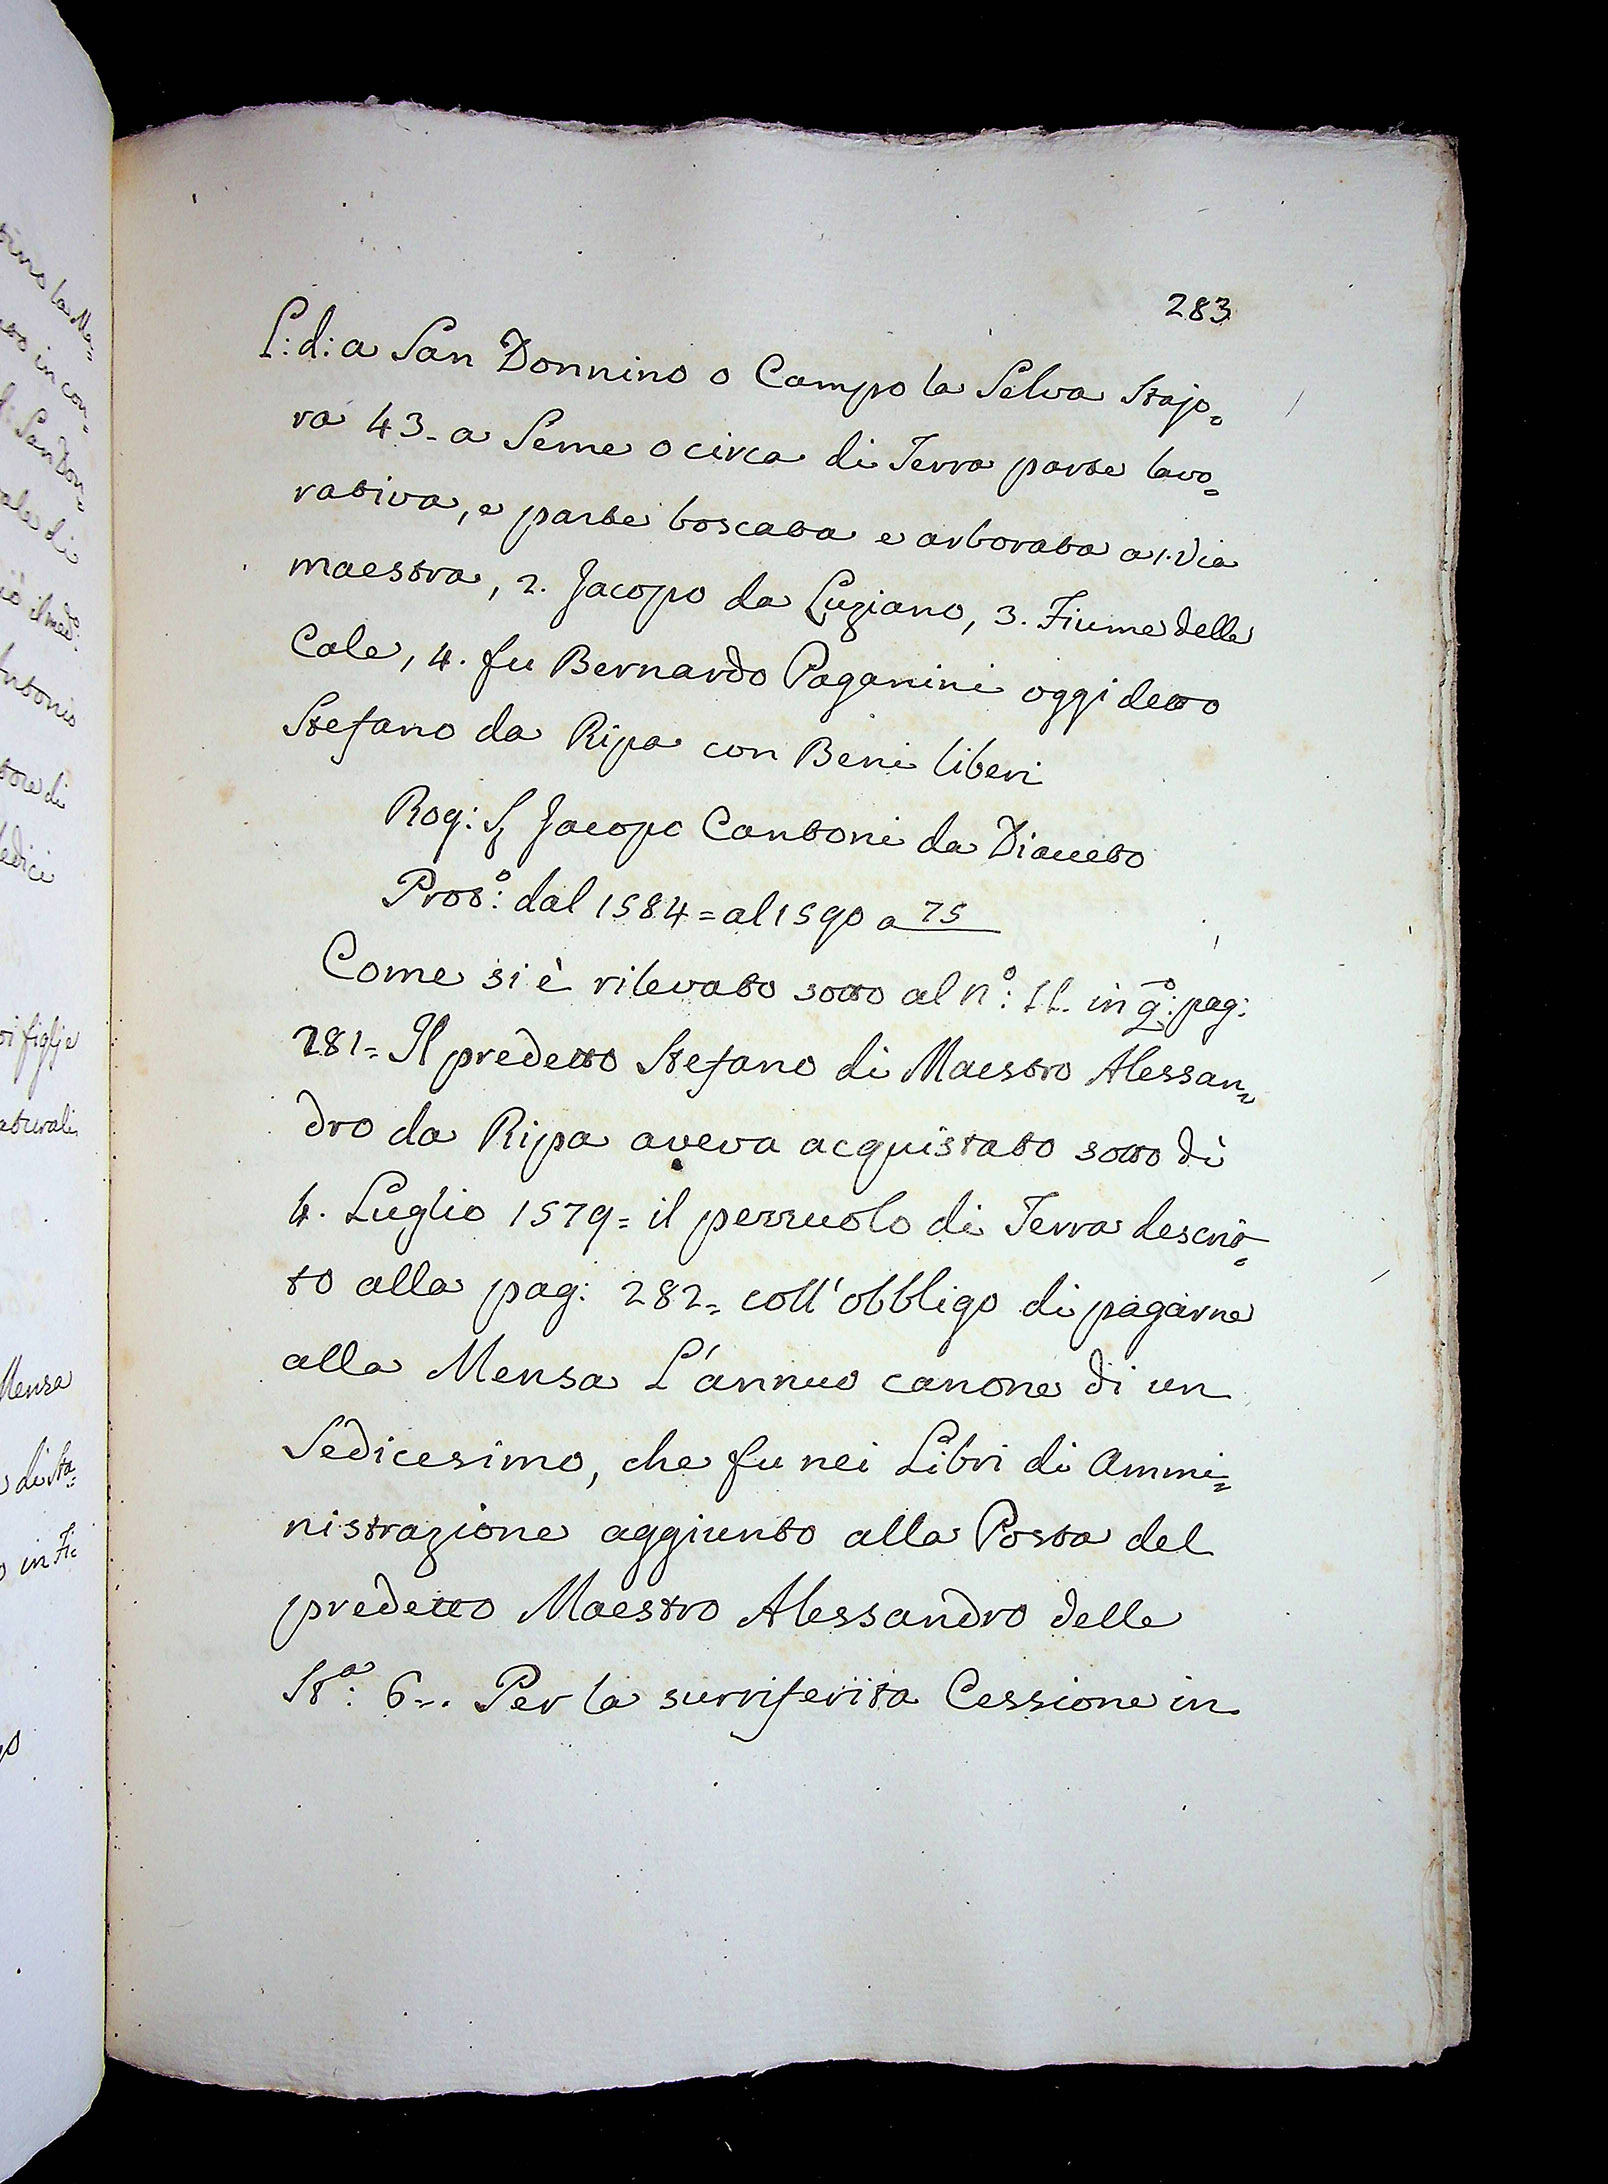 283
L: d: a San Donnino o Campo la Selva Stajo=
ra 43- a Seme o circa di Terra parte lavo=
rativa, e parte boscata e arborata a 1. Via
maestra, 2. Jacopo da Luziano, 3. Fiume delle
Cale, 4. fu Bernardo Paganini oggi detto
Stefano da Ripa con Beni liberi
Rog: S Jacopo Cantoni da Diaceto
Prot.º: dal 1584= al 1590 a 75
Come si è rilevato sotto al nº: 11. in qº: pag:
281= Il predetto Stefano di Maestro Alessan=
dro da Ripa aveva acquistato sotto dì
4. Luglio 1579= il pezzuolo di Terra descrit=
to alla pag: 282= coll'obbligo di pagarne
alla Mensa L'annuo canone di un
Sedicesimo, che fu nei Libri di Ammi=
nistrazione aggiunto alla Posta del
predetto Maestro Alessandro delle
Stª: 6-. Per la surriferita Cessione in
tino la Ma=
in con=
San Don=
ale di
il med:
Antonio
tore di
edici
figlje
aturali
Mensa
di Sta=
in Fi=